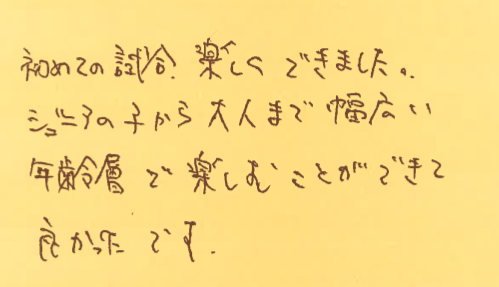 初めての試合、楽しくできました。
ジュニアの子から大人まで幅広い
年齢層で楽しむことができて
良かったです。